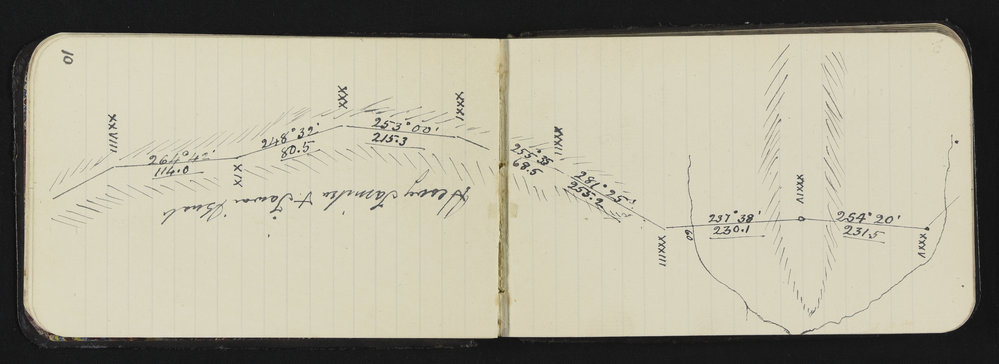 10
XXVIIII
264° 47'
114.0
XIX
248° 32'
80.5
XXX
253° 00'
215.3
XXXI
Heavy Tarnihu & Tawai Bush
XXXII
255° 35
68.5
281° 25'
253.2
XXXIII
60
237° 38'
230.1
XXXIV
254° 20'
231.5
XXXV